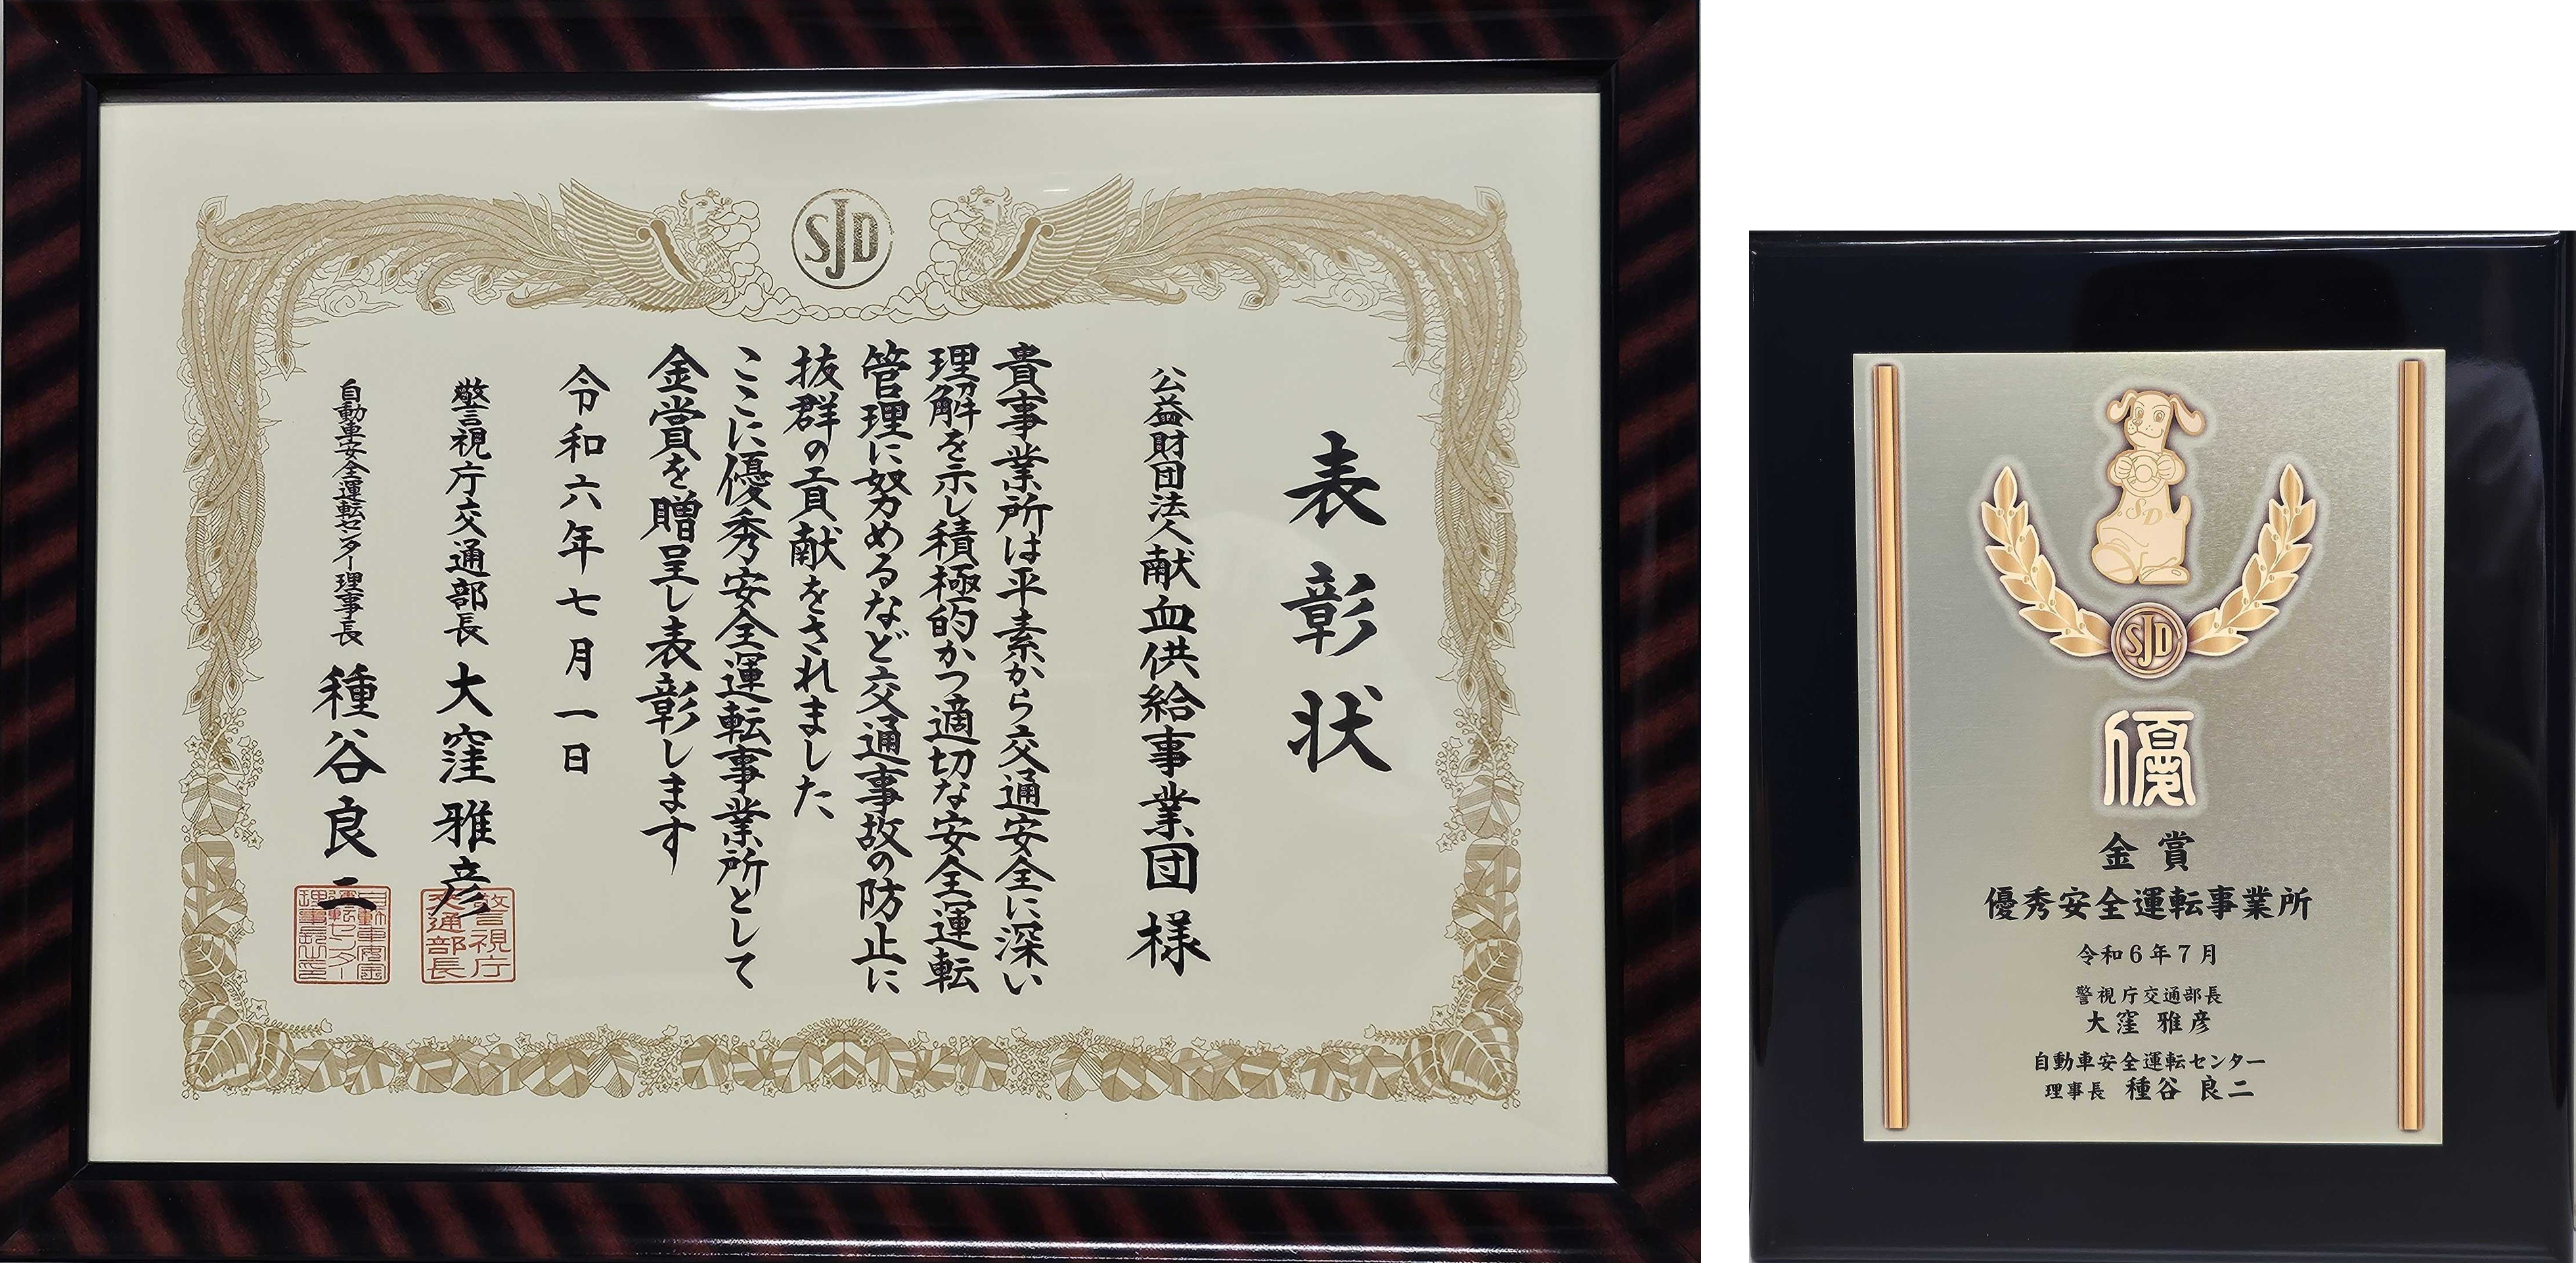 SJD
表彰状
公益財団法人献血供給事業団様
貴事業所は平素から交通安全に深い
理解を示し積極的かつ適切な安全運転
管理に努めるなど交通事故の防止に
抜群の貢献をされました
ここに優秀安全運転事業所として
金賞を贈呈し表彰します
令和六年七月一日
警視庁交通部長 大窪雅彦
警視庁
交通部長
自動車安全運転センター理事長 種谷良二
自動車安全
運転センター
理事長之印
SD
SJD
優
金賞
優秀安全運転事業所
令和6年7月
警視庁交通部長
大窪 雅彦
自動車安全運転センター
理事長 種谷 良二